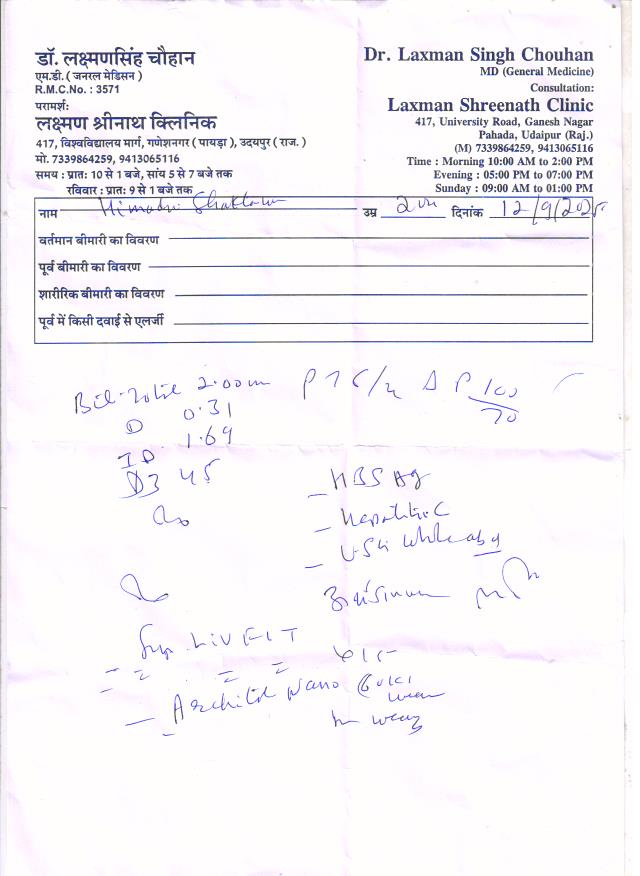 डॉ. लक्ष्मणसिंह चौहान
एम.डी. ( जनरल मेडिसन )
R.M.C.No. : 3571
परामर्श:
लक्ष्मण श्रीनाथ क्लिनिक
417, विश्वविद्यालय मार्ग, गणेशनगर ( पायड़ा ), उदयपुर ( राज. )
मो. 7339864259, 9413065116
समय : प्रात: 10 से 1 बजे, सांय 5 से 7 बजे तक
रविवार : प्रात: 9 से 1 बजे तक
Dr. Laxman Singh Chouhan
MD (General Medicine)
Consultation:
Laxman Shreenath Clinic
417, University Road, Ganesh Nagar
Pahada, Udaipur (Raj.)
(M) 7339864259, 9413065116
Time : Morning 10:00 AM to 2:00 PM
Evening : 05:00 PM to 07:00 PM
Sunday : 09:00 AM to 01:00 PM
नाम उम्र दिनांक 12/9/2025
वर्तमान बीमारी का विवरण
पूर्व बीमारी का विवरण
शारीरिक बीमारी का विवरण
पूर्व में किसी दवाई से एलर्जी
2.00 P 100/70
D 0.31
ID 1.69
D3 45
HBS Ag
Hepatitis C
USG Whole abd
LIVFIT
Nano